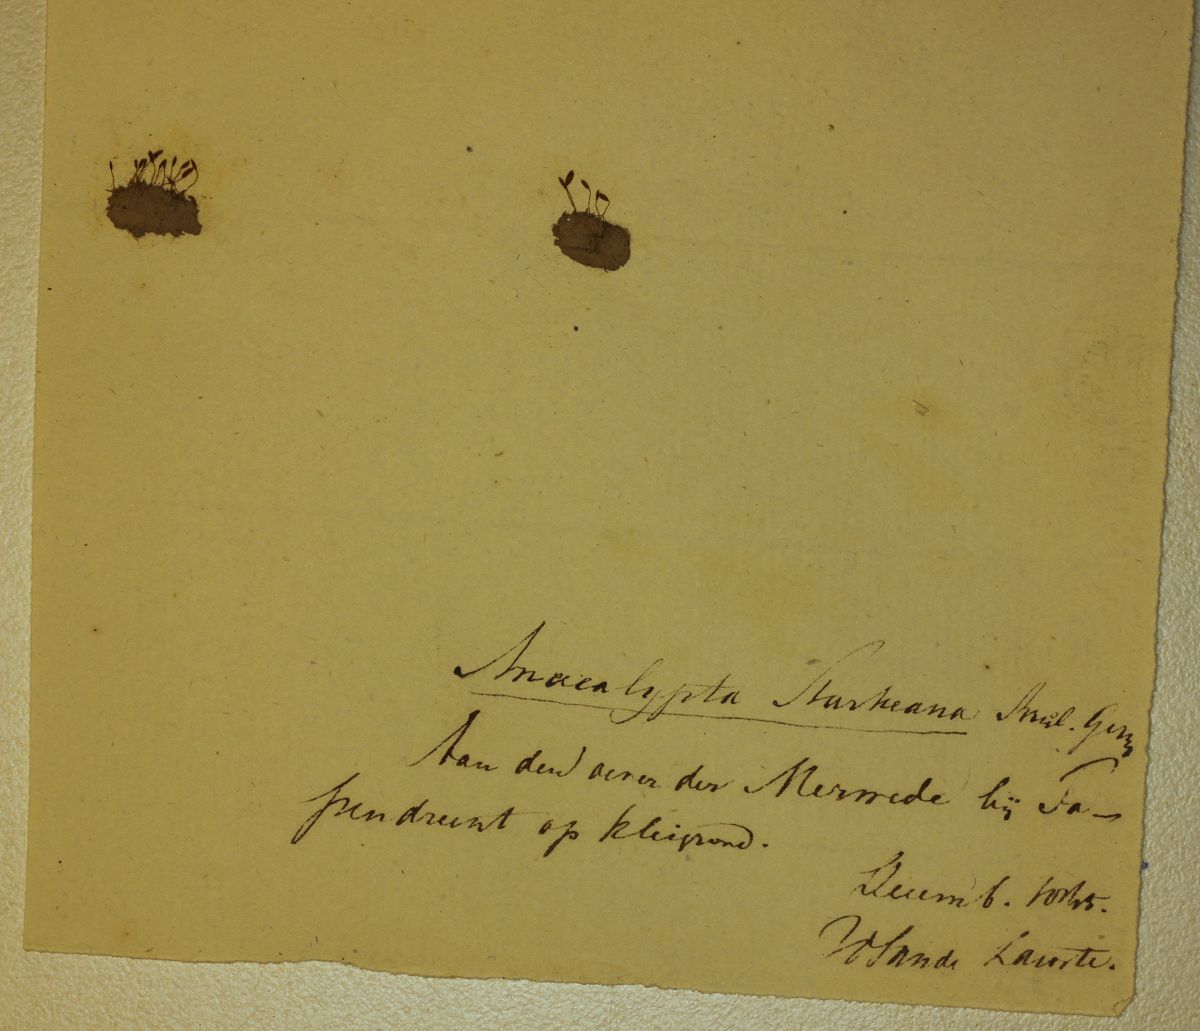 Anacalypta Starkeana Bruil. Germ
Aan den oever der Merwede bij Pa-
pendrecht op kleigrond.
Decemb. 1845.
vd Sande Lacoste.